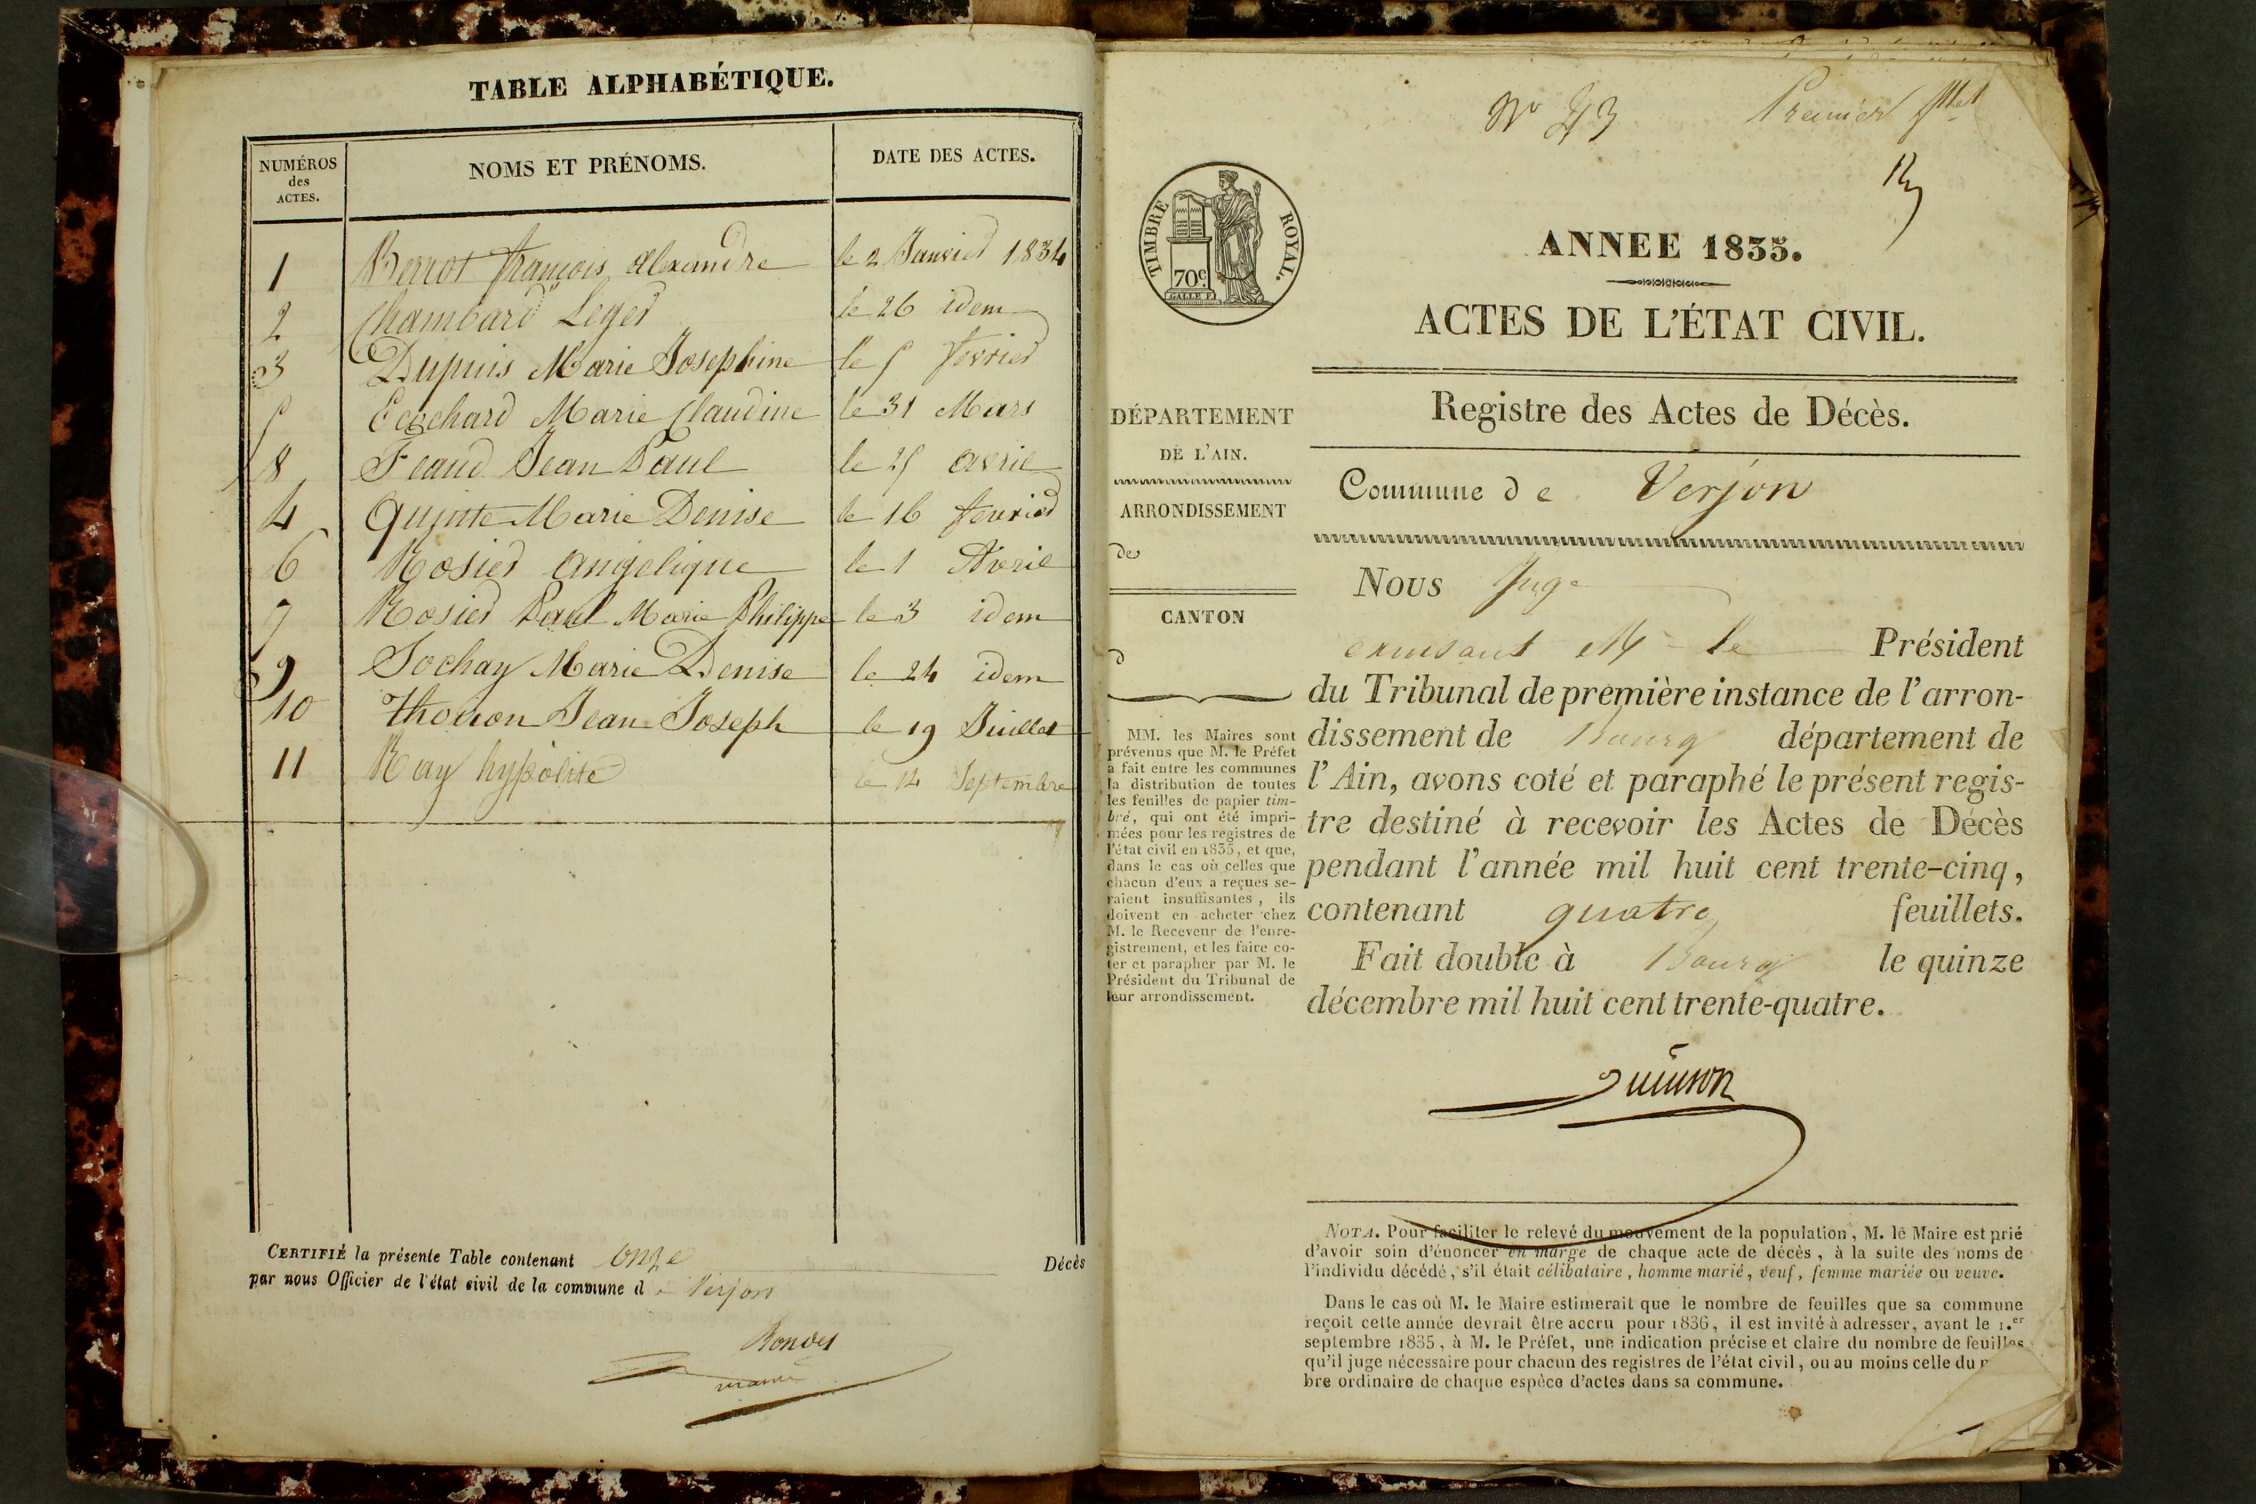 TABLE ALPHABÉTIQUE.
NUMÉROS des ACTES.
NOMS ET PRÉNOMS.
DATE DES ACTES.
1 Bernot françois alexandre le 2 Janvier 1834
2 Chambard Leger le 26 idem
3 Dupuis Marie Josephine le 5 fevrier
5 Ecochard Marie Claudine le 31 Mars
8 Feaud Jean Paul le 25 avril
4 Quinte Marie Denise le 16 fevrier
6 Rosier angelique le 1 Avril
7 Rosier Paul Marie Philippe le 3 idem
9 Sochay Marie Denise le 24 idem
10 Thouon Jean Joseph le 19 Juillet
11 Ray hypolite le 14 Septembre
CERTIFIÉ la présente Table contenant onze Décès
par nous Officier de l'état civil de la commune de Verjon
maire
N° 43 Premier
TIMBRE ROYAL.
70c.
GALLE F.
ANNEE 1835.
ACTES DE L'ÉTAT CIVIL.
Registre des Actes de Décès.
DÉPARTEMENT
DE L'AIN.
ARRONDISSEMENT
de
CANTON
d
MM. les Maires sont
prévenus que M. le Préfet
a fait entre les communes
la distribution de toutes
les feuilles de papier tim-
bré, qui ont été impri-
mées pour les registres de
l'état civil en 1835, et que,
dans le cas où celles que
chacun d'eux a reçues se-
raient insuffisantes, ils
doivent en acheter chez
M. le Receveur de l'enre-
gistrement, et les faire co-
ter et parapher par M. le
Président du Tribunal de
leur arrondissement.
Commune de Verjon
Nous Juge
M le Président
du Tribunal de première instance de l'arron-
dissement de Bourg département de
l'Ain, avons coté et paraphé le présent regis-
tre destiné à recevoir les Actes de Décès
pendant l'année mil huit cent trente-cinq,
contenant quatre feuillets.
Fait double à Bourg le quinze
décembre mil huit cent trente-quatre.
NOTA. Pour faciliter le relevé du mouvement de la population, M. le Maire est prié
d'avoir soin d'énoncer en marge de chaque acte de décès, à la suite des noms de
l'individu décédé, s'il était célibataire, homme marié, veuf, femme mariée ou veuve.
Dans le cas où M. le Maire estimerait que le nombre de feuilles que sa commune
reçoit cette année devrait être accru pour 1836, il est invité à adresser, avant le 1.er
septembre 1835, à M. le Préfet, une indication précise et claire du nombre de feuilles
qu'il juge nécessaire pour chacun des registres de l'état civil, ou au moins celle du
bre ordinaire de chaque espèce d'actes dans sa commune.